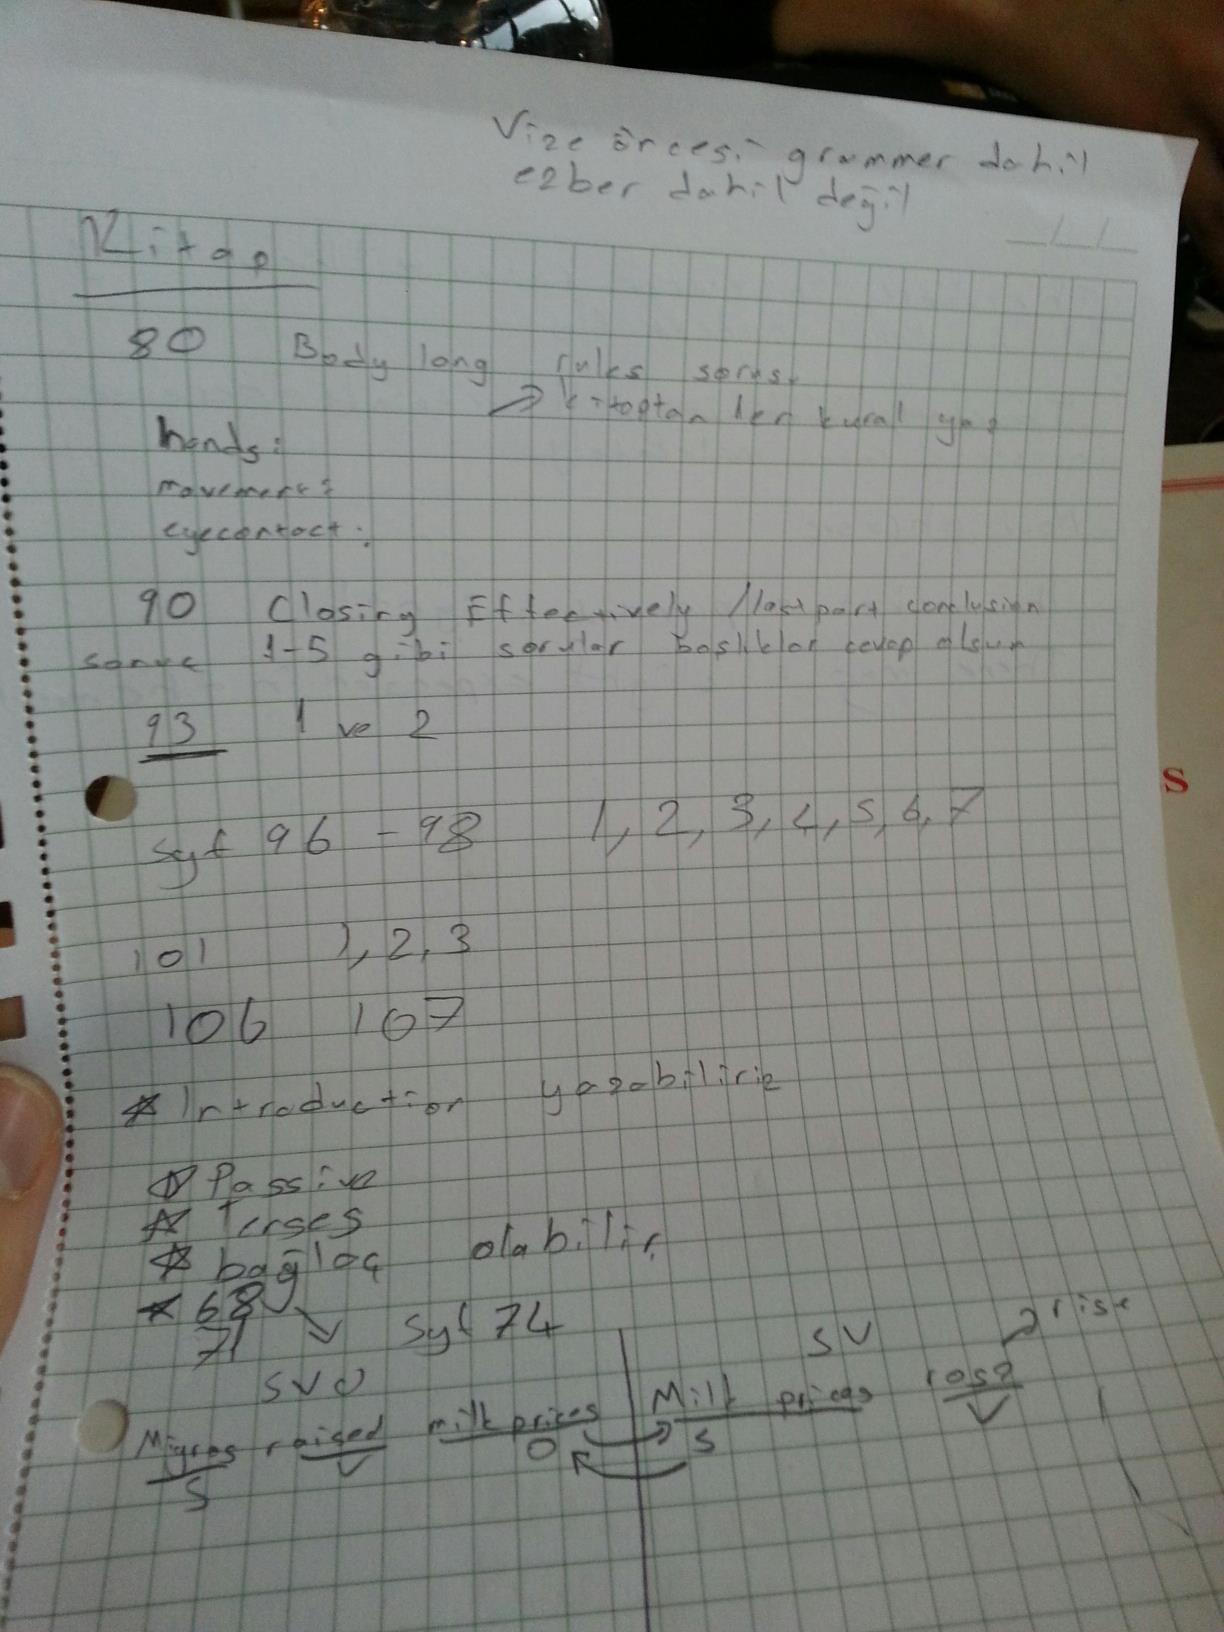 Vize öncesi grammer dahil
ezber dahil değil
Kitap
80 Body long rules sorusu
→ kitaptan her kural yap
hands:
movement:
eyecontact:
90 Closing Effectively / last part conclusion
sonra 1-5 gibi sorular başlıklar cevap olsun
93 1 ve 2
syf 96 - 98 1, 2, 3, 4, 5, 6, 7
101 1, 2, 3
106 107
* Introduction yazabiliriz
* Passive
* Tenses
* bağlaç olabilir
* 68
71 syf 74
SV → rise
SVO
Migros raised milk prices Milk prices rose
S V O S V
S